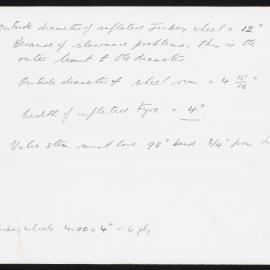 Outside diameter of inflated Jockey wheel = 12"
Because of clearance problems, this is the
outer limit to the diameter.
Outside diameter of wheel rim = 4 15/16"
Width of inflated tyre = 4"
Valve stem must have 90° bend 3/4" from
Jockey wheels 4.00 × 4" - 6 ply